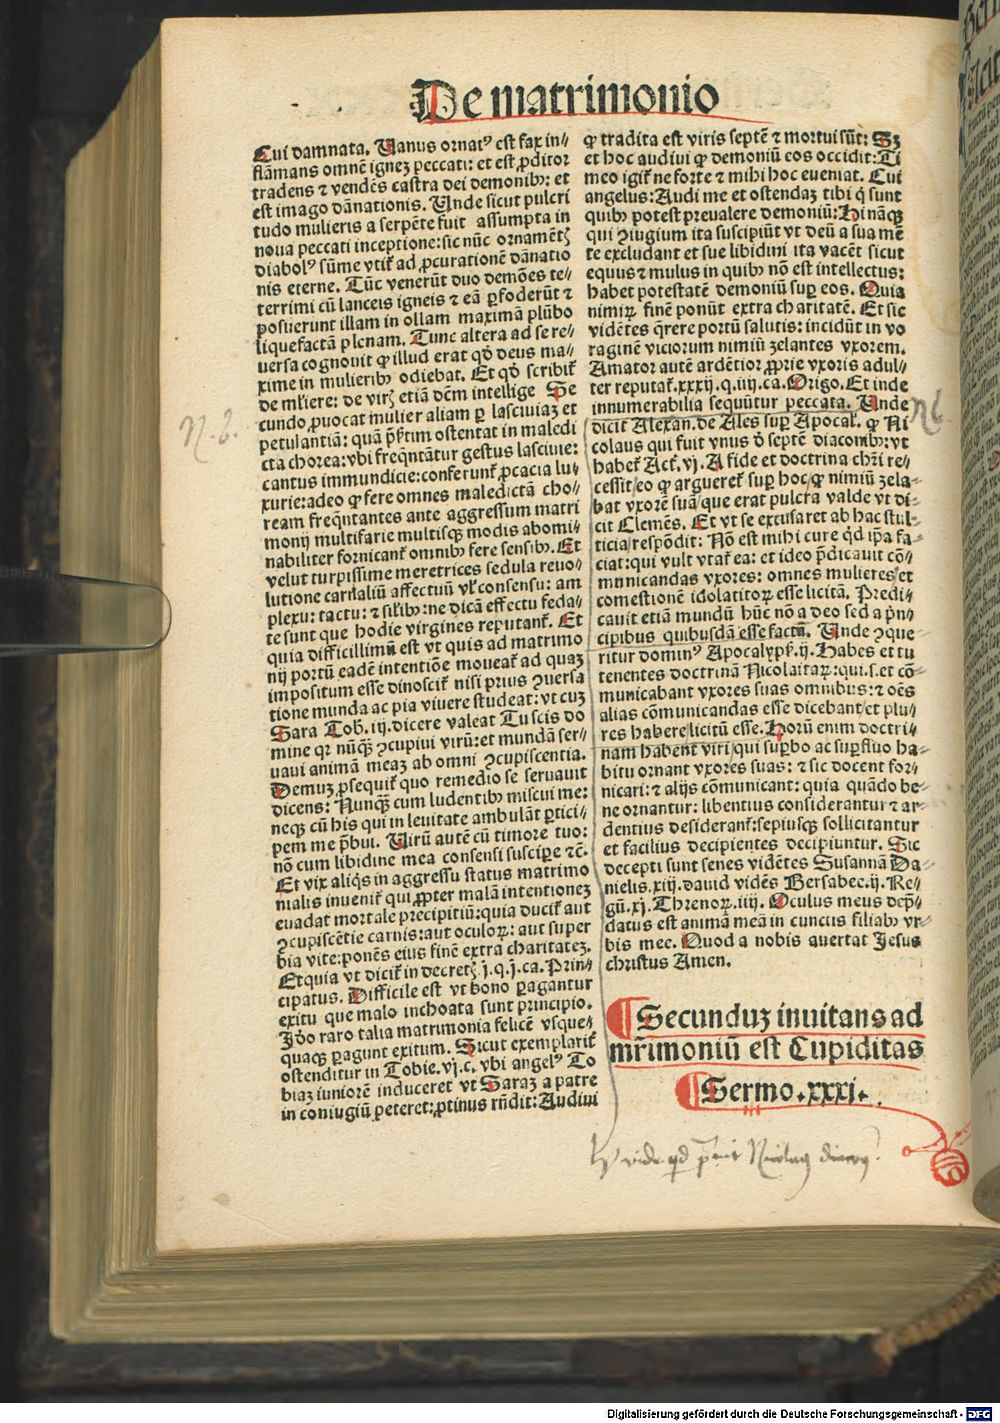 De matrimonio
Cui damnata. Vanus ornatꝰ est fax in⸗
flāmans omnē ignez peccati: et est ꝓditor
tradens ⁊ vendēs castra dei demonibꝫ: et
est imago dānationis. Vnde sicut pulcri
tudo mulieris a serpēte fuit assumpta in
noua peccati inceptione: sic nūc ornamētꝭ
diabolꝰ sūme vtit᷑ ad ꝓcurationē dānatio
nis eterne. Tūc venerūt duo demōes te⸗
terrimi cū lanceis igneis ⁊ eā ꝑfoderūt ⁊
posuerunt illam in ollam maximā plūbo
liquefactā plenam. Tunc altera ad se re⸗
uersa cognouit ꝙ illud erat qđ deus ma⸗
xime in mulieribꝰ odiebat. Et qđ scribit᷑
de mĺiere: de virꝭ etiā dēm intellige Se
cundo ꝓuocat mulier aliam ꝑ lasciuiaz et
petulantiā: quā p̄rtim ostentat in maledi
cta chorea: vbi freqn̄tātur gestus lasciuie:
cantus immundicie: conferunt᷑ ꝓcacia lu⸗
xurie: adeo ꝙ fere omnes maledictā cho⸗
ream freqn̄tantes ante aggressum matri
monij multifarie multisqꝫ modis abomi⸗
nabiliter fornicant᷑ omnibꝫ fere sensibꝫ. Et
velut turpissime meretrices sedula reuo⸗
lutione carnaliū affectuū vĺ consensu: am
plexu: tactu: ⁊ siĺibꝫ: ne dicā effectu feda⸗
te sunt que hodie virgines reputant᷑. Et
quia difficillimū est vt quis ad matrimo
nij portū eadē intentiōe moueat᷑ ad quaz
impositum esse dinoscit᷑ nisi prius ꝯuersa
tione munda ac pia viuere studeat: vt cuz
Sara Tob. iij. dicere valeat Tu scis do
mine qꝛ nūqꝫ ꝯcupiui virū: et mundā ser⸗
uaui animā meaz ab omni ꝯcupiscentia.
Demuz ꝓsequit᷑ quo remedio se seruauit
dicens: Nunqꝫ cum ludentibꝫ miscui me:
neqꝫ cū his qui in leuitate ambulāt ꝑtici⸗
pem me p̄bui. Virū autē cū timore tuo:
nō cum libidine mea consensi suscipe ⁊c̄.
Et vix aliq̄s in aggressu status matrimo
nialis inuenit᷑ qui ꝓpter malā intentionez
euadat mortale precipitiū: quia ducit᷑ aut
ꝯcupiscētie carnis: aut oculoꝝ: aut super
bia vite: ponēs eius finē extra charitatez.
Et quia vt dicit᷑ in decretꝭ j. q. j. ca. Prin⸗
cipatus. Difficile est vt bono ꝑagantur
exitu que malo inchoata sunt principio.
Jđo raro talia matrimonia felicē vsque⸗
quaqꝫ ꝑagunt exitum. Sicut exemplarit᷑
ostenditur in Tobie. vj. c. vbi angelꝰ To
biaz iuniorē induceret vt Saraz a patre
in coniugiū peteret: ꝓtinus rn̄dit: Audiui
ꝙ tradita est viris septē ⁊ mortui sūt: Sꝫ
et hoc audiui ꝙ demoniū eos occidit: Ti
meo igit᷑ ne forte ⁊ mihi hoc eueniat. Cui
angelus: Audi me et ostendaz tibi q̇ sunt
quibꝫ potest preualere demoniū: Hi nāqꝫ
qui ꝯiugium ita suscipiūt vt deū a sua mē
te excludant et sue libidini ita vacēt sicut
equus ⁊ mulus in quibꝫ nō est intellectus:
habet potestatē demoniū suꝑ eos. Quia
nimiꝝ finē ponūt extra charitatē. Et sic
vidētes q̄rere portū salutis: incidūt in vo
raginē viciorum nimiū zelantes vxorem.
Amator autē ardētior ꝓprie vxoris adul⸗
ter reputat᷑. xxxij. q. iiij. ca. Origo. Et inde
innumerabilia sequūtur peccata. Vnde
dicit Alexan. de Ales suꝑ Apocaĺ. ꝙ Ni
colaus qui fuit vnus đ septē diaconibꝫ: vt
habet᷑ Act. vj. A fide et doctrina chr̄i re⸗
cessit/ eo ꝙ argueret᷑ suꝑ hoc/ ꝙ nimiū zela⸗
bat vxorē suā/ que erat pulcra valde vt di⸗
cit Clemēs. Et vt se excusaret ab hac stul⸗
ticia/ respōdit: Nō est mihi cure q̇d ip̄a fa⸗
ciat: qui vult vtat᷑ ea: et ideo p̄dicauit cō⸗
municandas vxores: omnes mulieres/ et
comestionē idolatitoꝝ esse licitā. Predi⸗
cauit etiā mundū hūc nō a deo sed a pr̄in⸗
cipibus quibusdā esse factū. Vnde ꝯque⸗
ritur dominꝰ Apocalyp̄. ij. Habes et tu
tenentes doctrinā Nicolaitaꝝ: qui. s. et cō⸗
municabant vxores suas omnibus: ⁊ oēs
alias cōmunicandas esse dicebant/ et plu⸗
res habere licitū esse. Horū enim doctri⸗
nam habent viri/ qui suꝑbo ac suꝑfluo ha⸗
bitu ornant vxores suas: ⁊ sic docent for⸗
nicari: ⁊ alijs cōmunicant: quia quādo be⸗
ne ornantur: libentius considerantur ⁊ ar⸗
dentius desiderant᷑: sepiusqꝫ sollicitantur
et facilius decipientes decipiuntur. Sic
decepti sunt senes vidētes Susannā Da⸗
nielis. xiij. dauid vidēs Bersabee. ij. Re⸗
gū. xj. Threnoꝝ. iiij. Oculus meus dep̄⸗
datus est animā meā in cunctis filiabꝫ vr⸗
bis mee. Quod a nobis auertat Jesus
christus Amen.
Secunduz inuitans ad
mr̄imoniū est Cupiditas
Sermo. xxxj.
N. b.
Nb
vide qd Nicolaus
Digitalisierung gefördert durch die Deutsche Forschungsgemeinschaft - DFG